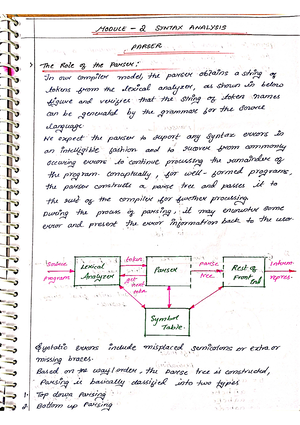 MODULE - 2 SYNTAX ANALYSIS
PARSER
The Role of the Parser:
In our compiler model, the parser obtains a string of
tokens from the lexical analyzer, as shown in below
figure and verifies that the string of token names
can be generated by the grammar for the source
language.
We expect the parser to report any syntax errors in
an intelligible fashion and to recover from commonly
occuring errors to continue processing the remainder of
the program. conceptually, for well-formed programs,
the parser constructs a parse tree and passes it to
the rest of the compiler for further processing.
During the process of parsing, it may encounter some
error and present the error information back to the user
source program
Lexical Analyzer
token
get next token
Parser
parse tree
Rest of Front End
interm repres.
Symbol Table.
Syntatic errors include misplaced semicolons or extra or
missing braces.
Based on way/order, the parse tree is constructed,
Parsing is basically classified into two types
1. Top down Parsing
2. Bottom up Parsing